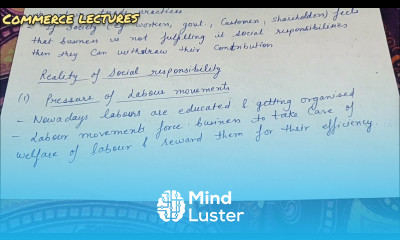 COMMERCE LECTURES
trade practices
of Society (eg. workers, govt., Customer, shareholders) feels
that business is not fulfilling it social responsibilities
then they Can withdraw their Contribution
Reality of Social responsibility
(1) Pressure of Labour movements
- Nowadays labours are educated & getting organised
- Labour movements force business to take Care of
welfare of labour & reward them for their efficiency.
Mind
Luster